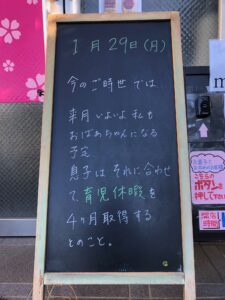 1月29日(月)
今のご時世では
来月いよいよ私も
おばあちゃんになる
予定
息子はそれに合わせ
て、育児休暇を
4ヶ月取得する
とのこと。
m
こちらの
ボタンを
押して下さい